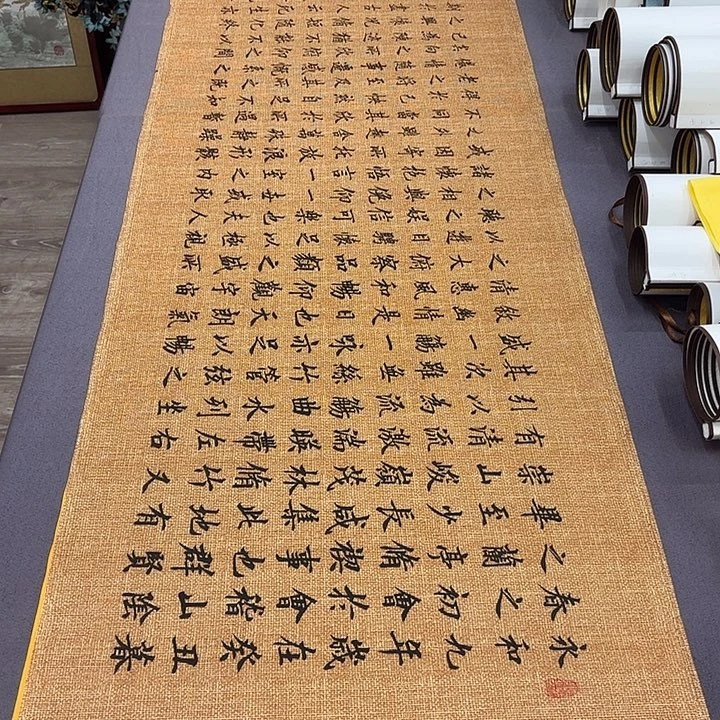 永和九年歲在癸丑暮
春之初會於會稽山陰
之蘭亭脩禊事也群賢
畢至少長咸集此地有
崇山峻嶺茂林脩竹又
有清流激湍映帶左右
引以為流觴曲水列坐
其次雖無絲竹管弦之
盛一觴一詠亦足以暢
敘幽情是日也天朗氣
清惠風和暢仰觀宇宙
之大俯察品類之盛所
以遊目騁懷足以極視
聽之娛信可樂也夫人
之相與俯仰一世或取
諸懷抱悟言一室之內
或因寄所託放浪形骸
之外雖趣舍萬殊靜躁
不同當其欣於所遇暫
得於己快然自足不知
老之將至及其所之既
惓情隨事遷感慨係之
矣向之所欣俯仰之間
已為陳迹猶不能不以
之興懷況脩短隨化終
期於盡古人云死生亦